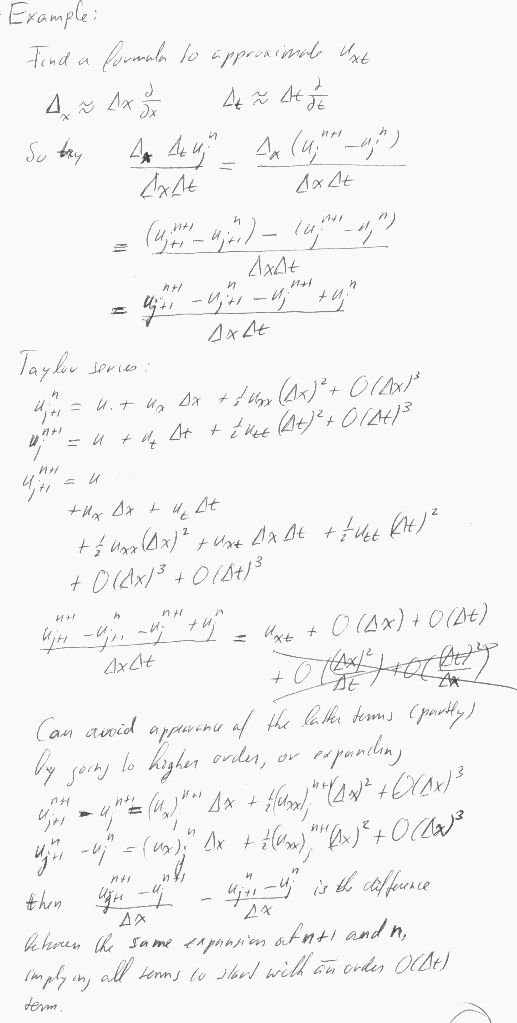 Example:
Find a formula to approximate u_{xt}
Δ_x ≈ Δx ∂/∂x    Δ_t ≈ Δt ∂/∂t
So try (Δ_x Δ_t u_j^n)/(ΔxΔt) = (Δ_x (u_j^{n+1} - u_j^n))/(ΔxΔt)
= ((u_{j+1}^{n+1} - u_{j+1}^n) - (u_j^{n+1} - u_j^n))/(ΔxΔt)
= (u_{j+1}^{n+1} - u_{j+1}^n - u_j^{n+1} + u_j^n)/(ΔxΔt)
Taylor series:
u_{j+1}^n = u + u_x Δx + ½ u_{xx} (Δx)^2 + O(Δx)^3
u_j^{n+1} = u + u_t Δt + ½ u_{tt} (Δt)^2 + O(Δt)^3
u_{j+1}^{n+1} = u
+ u_x Δx + u_t Δt
+ ½ u_{xx} (Δx)^2 + u_{xt} Δx Δt + ½ u_{tt} (Δt)^2
+ O(Δx)^3 + O(Δt)^3
(u_{j+1}^{n+1} - u_{j+1}^n - u_j^{n+1} + u_j^n)/(ΔxΔt) = u_{xt} + O(Δx) + O(Δt)
+ O((Δx)^2/Δt) + O((Δt)^2/Δx)
Can avoid appearance of the latter terms (partly)
by going to higher order, or expanding
u_{j+1}^{n+1} - u_j^{n+1} = (u_x)_j^{n+1} Δx + ½(u_{xx})_j^{n+1} (Δx)^2 + O(Δx)^3
u_{j+1}^n - u_j^n = (u_x)_j^n Δx + ½(u_{xx})_j^{n+1} (Δx)^2 + O(Δx)^3
then (u_{j+1}^{n+1} - u_j^{n+1})/Δx - (u_{j+1}^n - u_j^n)/Δx is the difference
between the same expansion at n+1 and n,
implying all terms to start with an order O(Δt)
term.